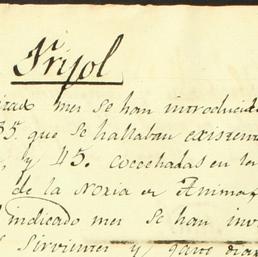 Frijol
mes se han introducid
35. que se hallaban existen
, y 45. cocechadas en
de la Noria er Animas
indicado mes se han inv
sirvientes y